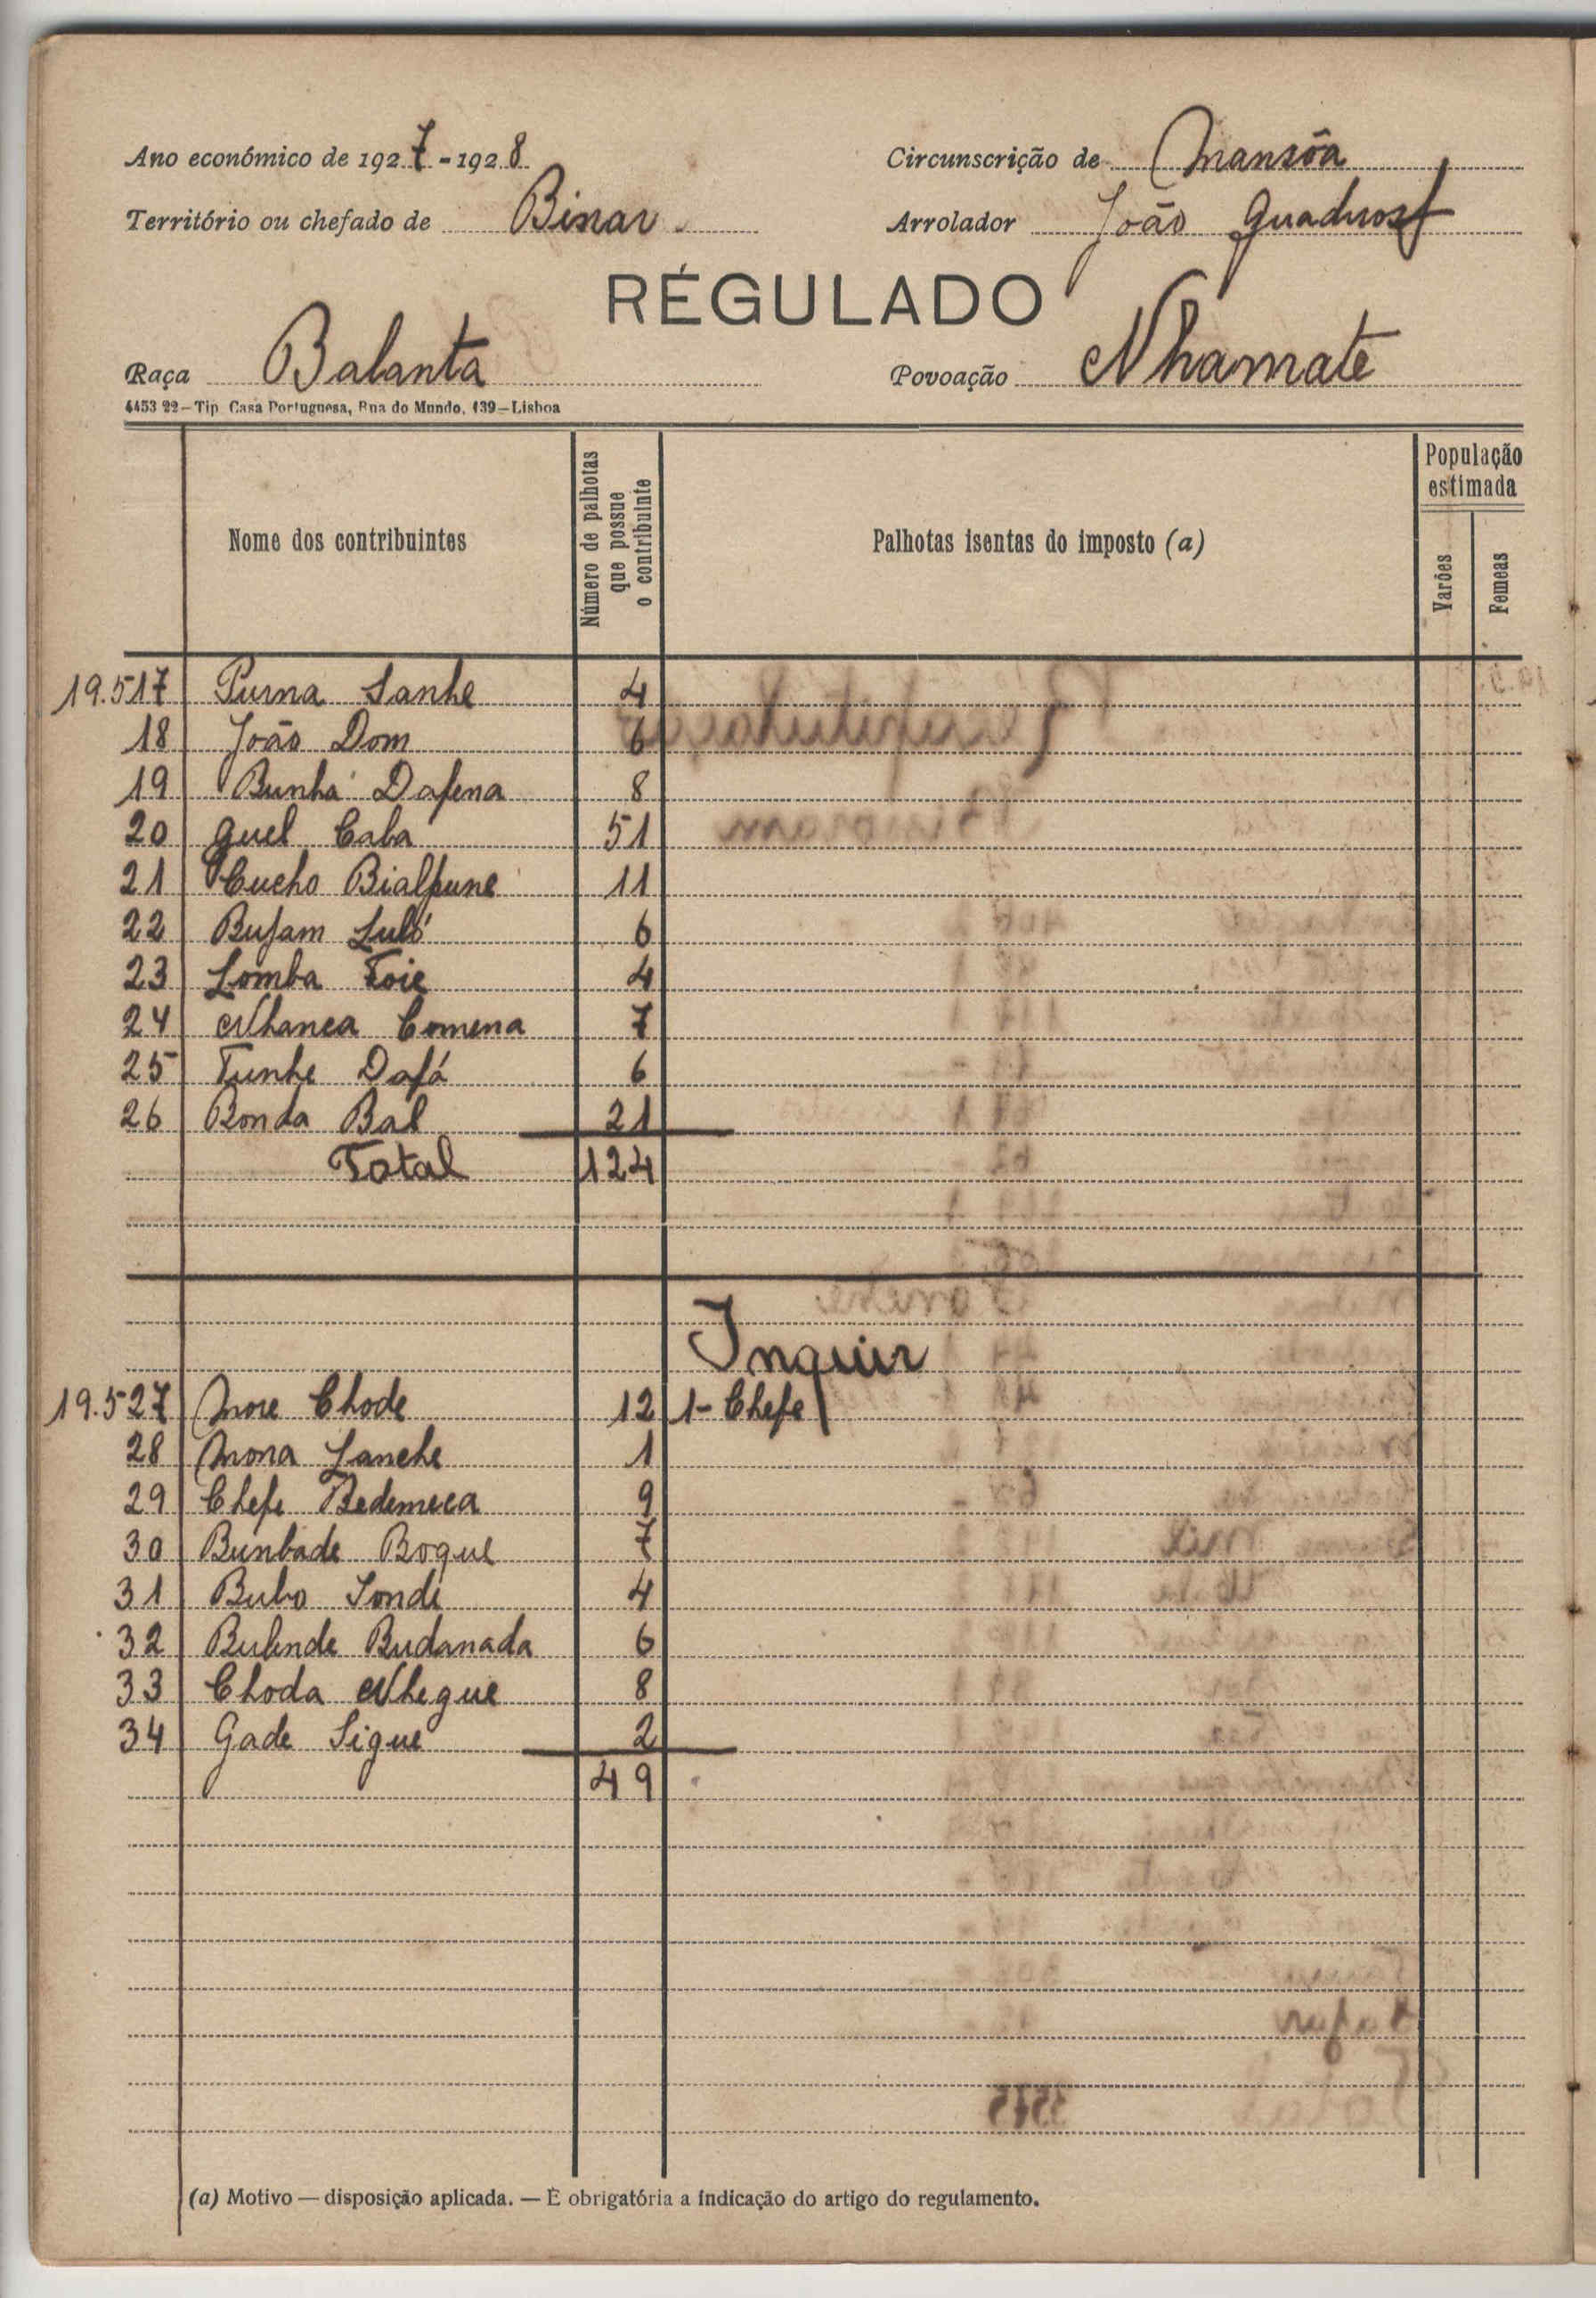 Ano económico de 1927-1928
Circunscrição de Mansôa
Território ou chefado de Binar
Arrolador João Quadros
RÉGULADO
Raça Balanta
Povoação Nhamate
4453 22—Tip. Casa Portuguesa, Rua do Mundo, 139—Lisboa
Nome dos contribuintes
Número de palhotas que possue o contribuinte
Palhotas isentas do imposto (a)
População estimada
Varões
Femeas
19.517 Purna Sanhe 4
18 João Dom 6
19 Bunha Dafena 8
20 Quel Caba 51
21 Cucho Bialpune 11
22 Bufam Luló 6
23 Lomba Foie 4
24 Nhanca Comena 7
25 Tunhe Dafá 6
26 Bonda Bal 21
Total 124
Inquir
19.527 More Chode 12 1-Chefe
28 Mona Sanche 1
29 Chefe Bedemeca 9
30 Bunbade Boque 7
31 Bubo Sonde 4
32 Bulende Budanada 6
33 Choda Nhegue 8
34 Gade Sigue 2
49
(a) Motivo — disposição aplicada. — É obrigatória a indicação do artigo do regulamento.